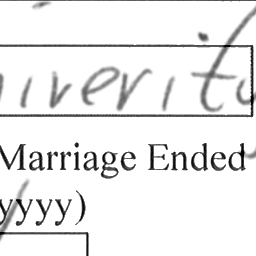 iverity
Marriage Ended
yyyy)